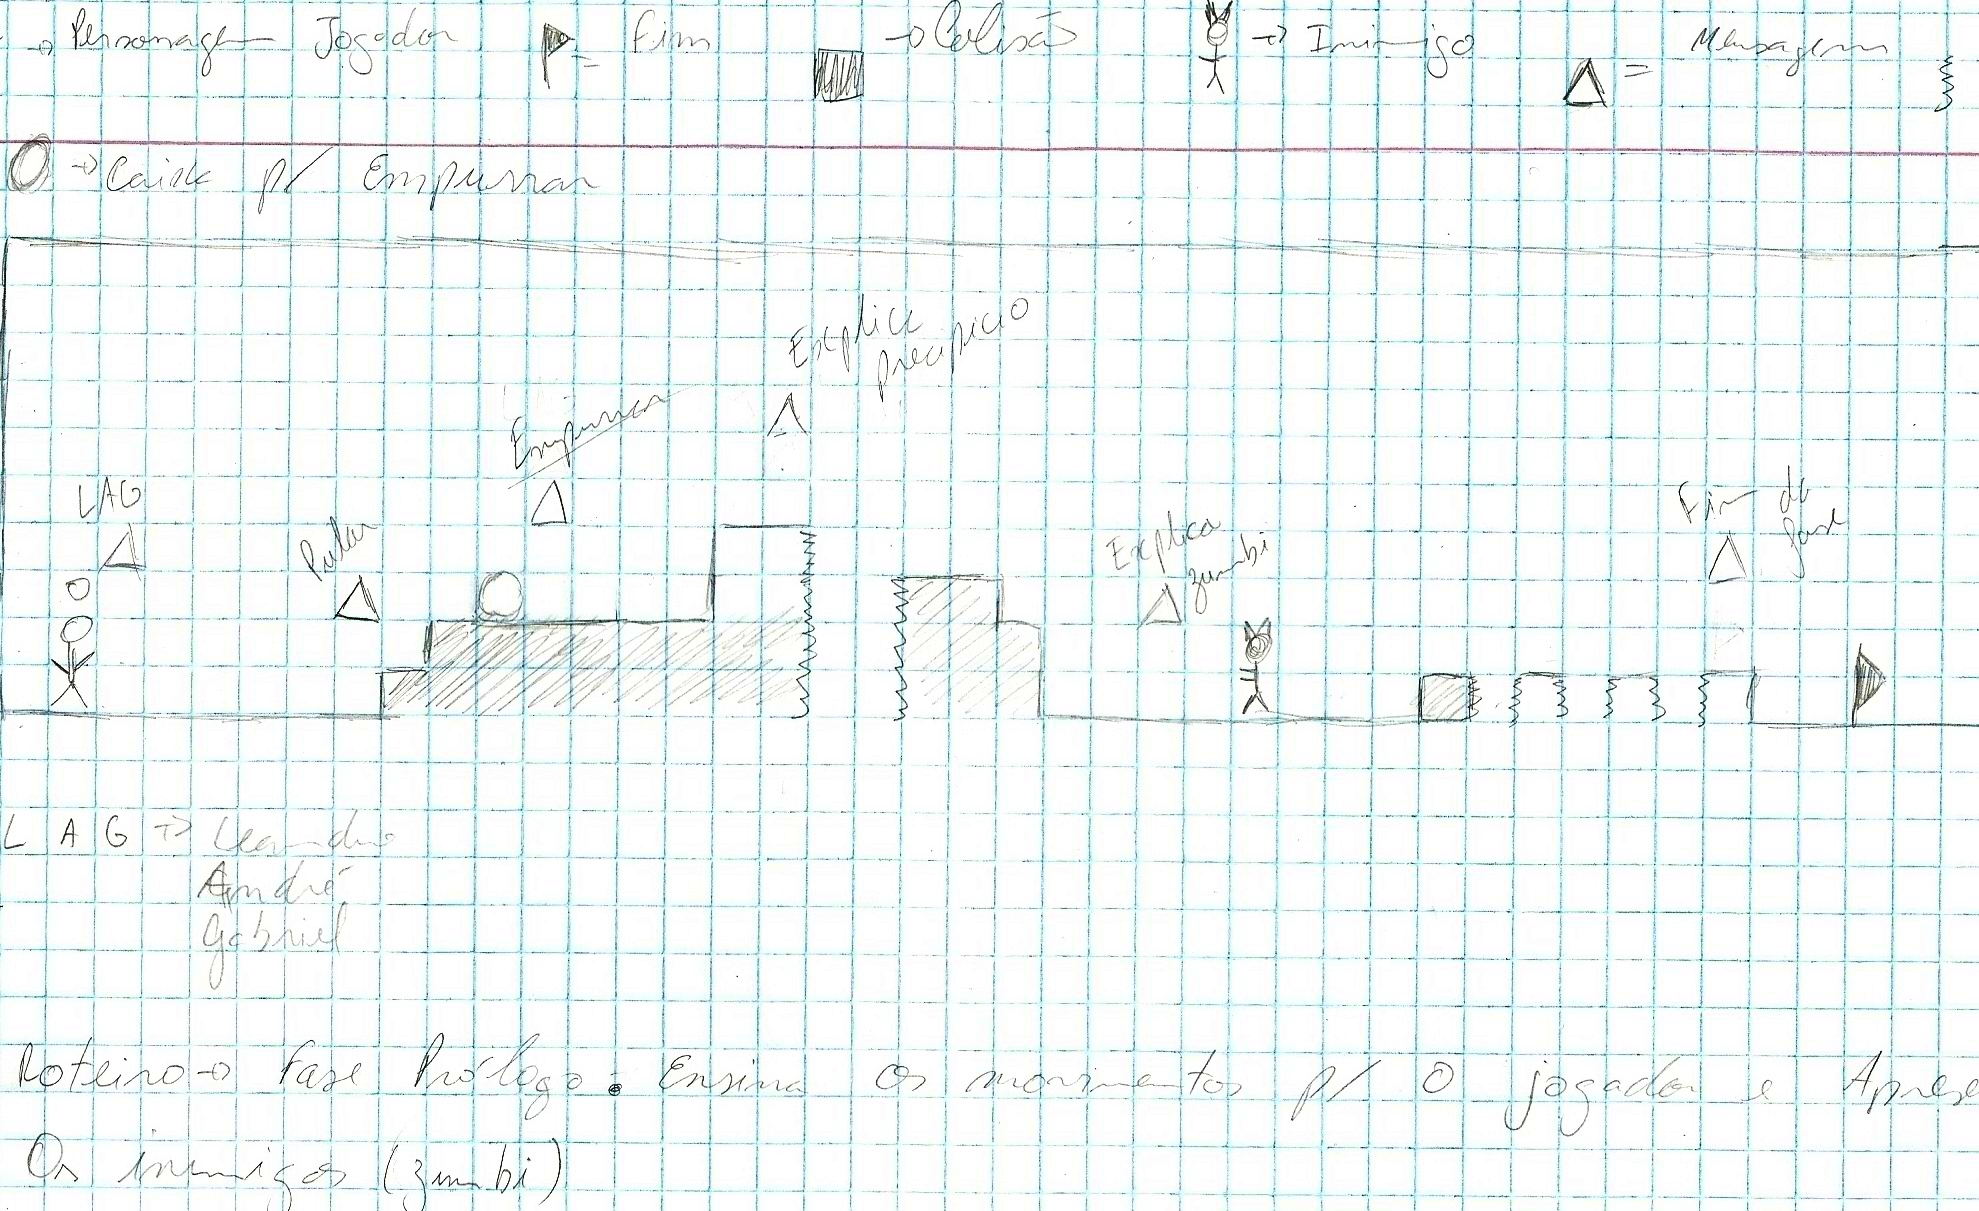 → Personagem Jogador
= Fim
→ Colisão
→ Inimigo
= Mensagem
→ Caixa p/ Empurrar
Explica
precipício
Empurrar
LAG
Pular
Explica
zumbi
Fim da
fase
L A G → Leandro
André
Gabriel
Roteiro → Fase Prólogo: Ensina os movimentos p/ O jogador e Aprese
Os inimigos (zumbi)